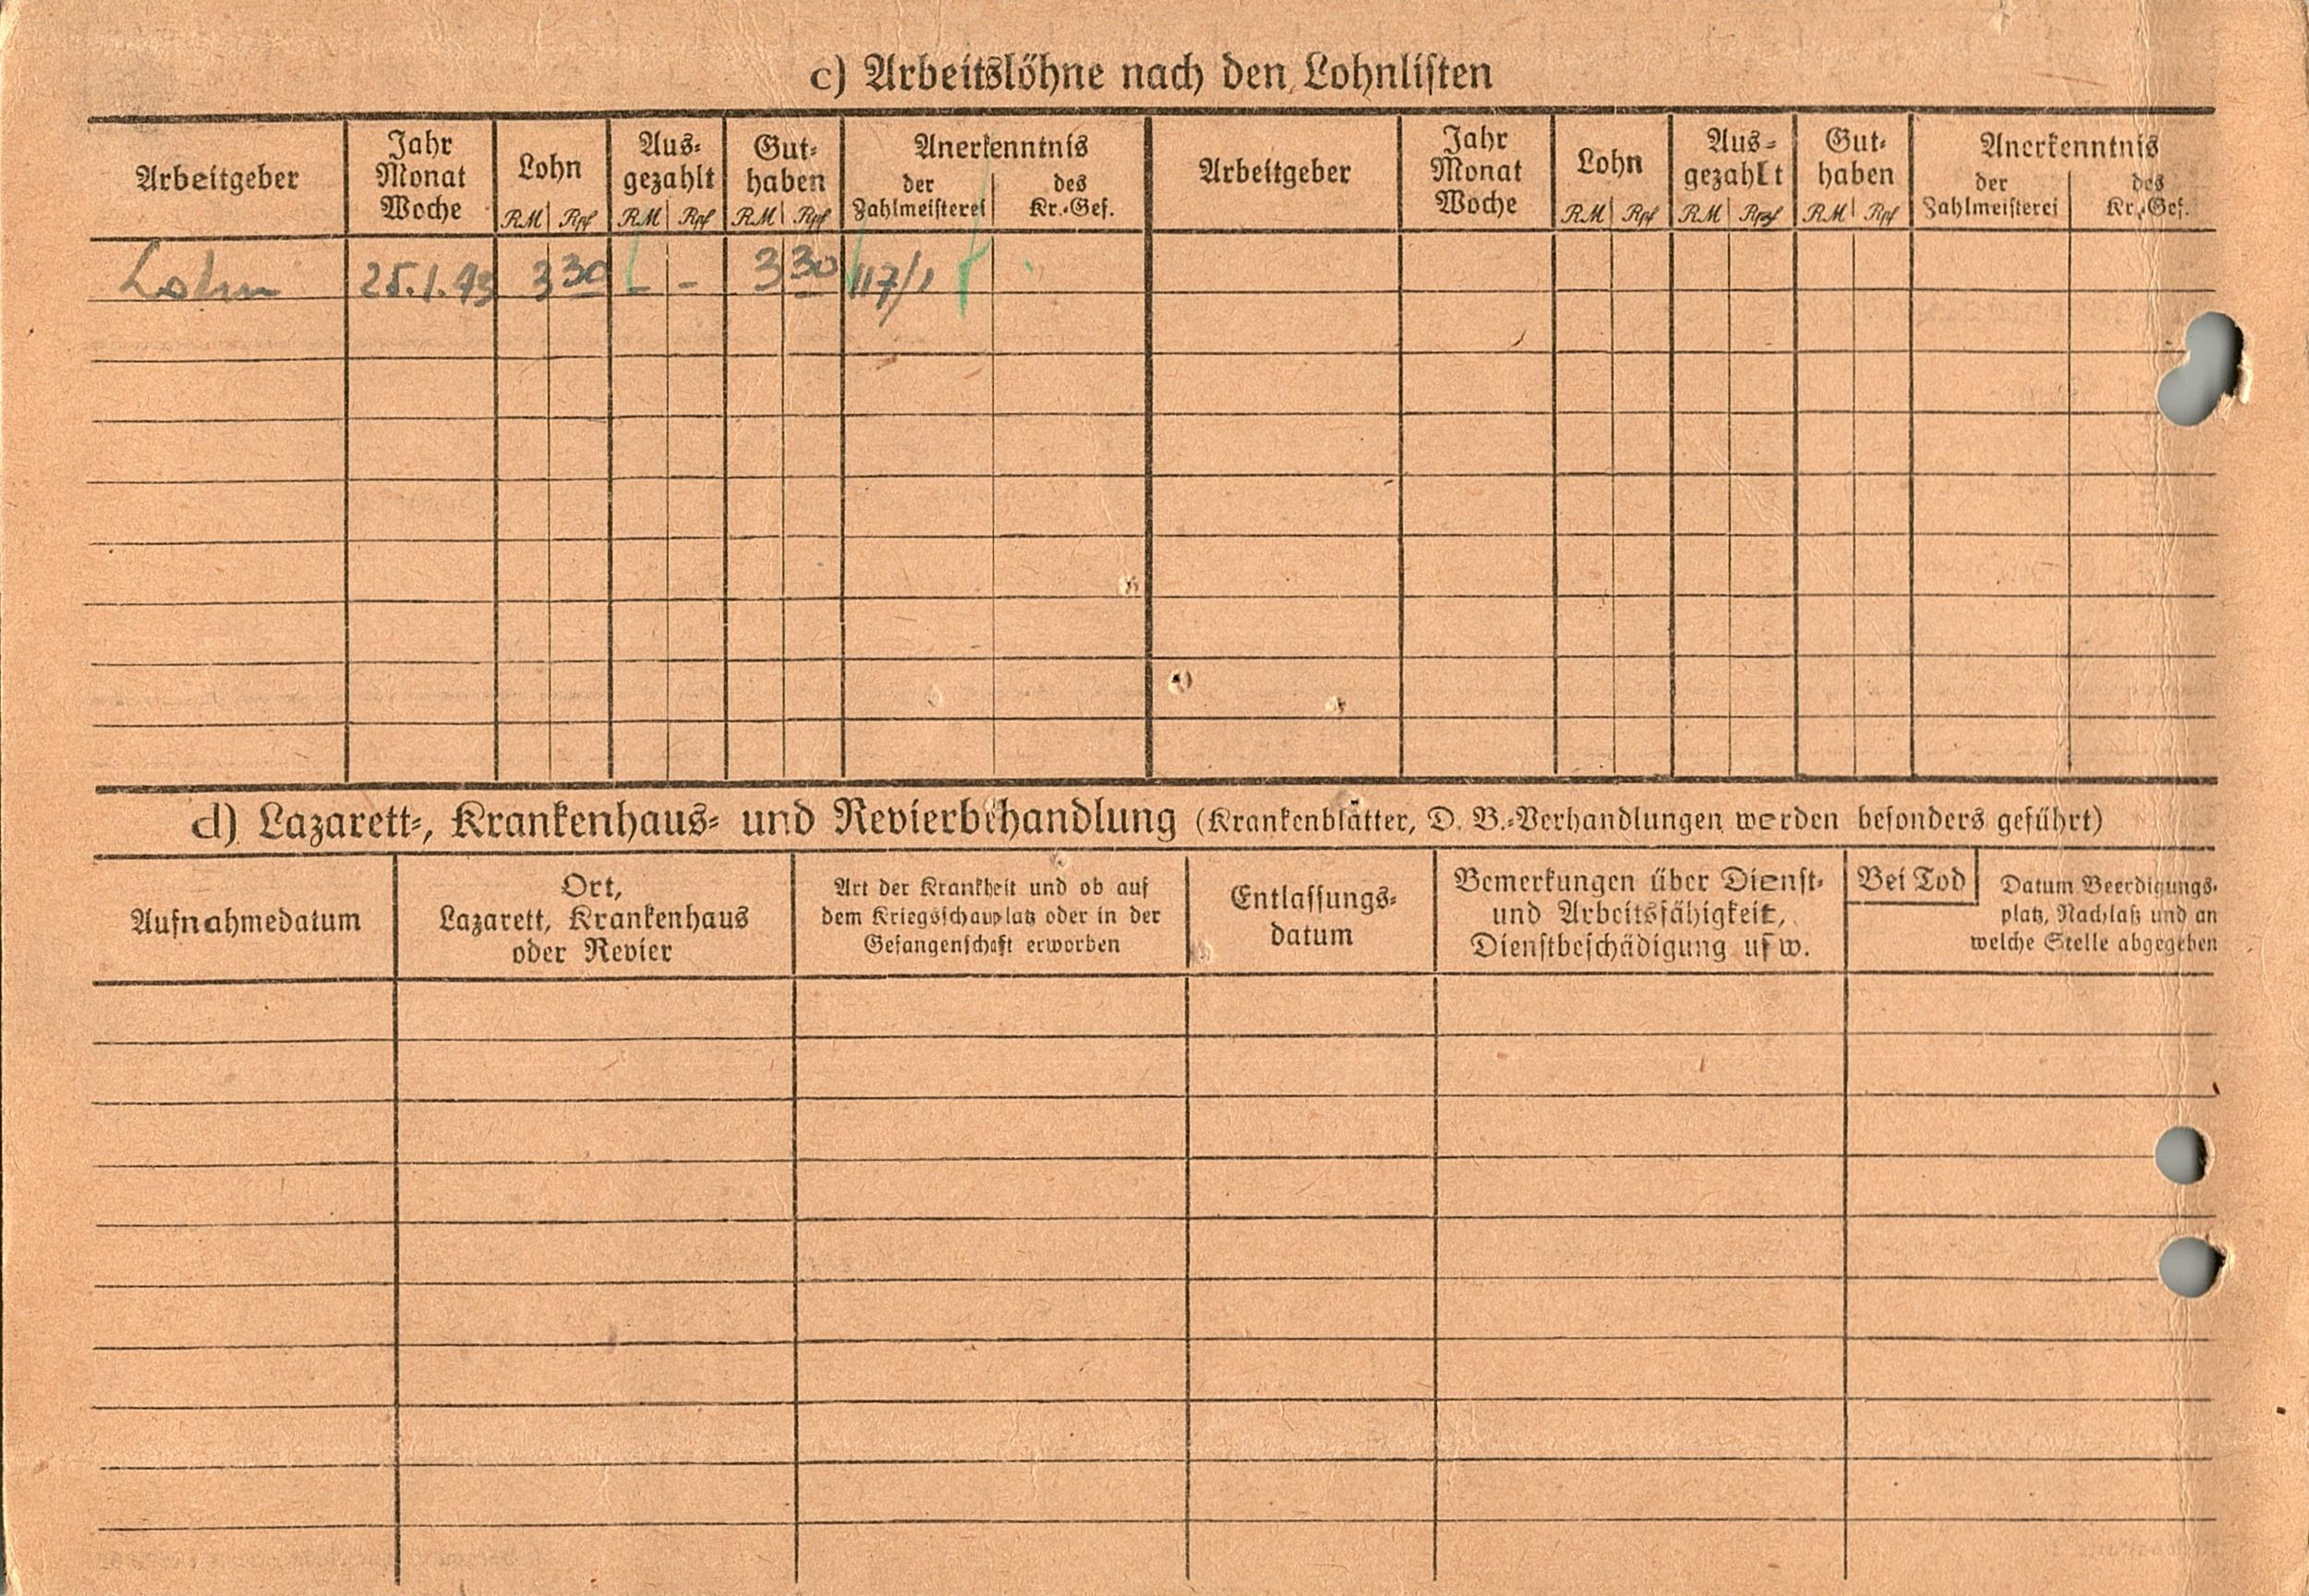 c) Arbeitslöhne nach den Lohnlisten
Arbeitgeber
Jahr
Monat
Woche
Lohn
RM Rpf
Aus-
gezahlt
RM Rpf
Gut-
haben
RM Rpf
Anerkenntnis
der
Zahlmeisterei
des
Kr.-Gef.
Arbeitgeber
Jahr
Monat
Woche
Lohn
RM Rpf
Aus-
gezahlt
RM Rpf
Gut-
haben
RM Rpf
Anerkenntnis
der
Zahlmeisterei
des
Kr.-Gef.
Lohn 25.1.43 3 30 - - 3 30 117/1
d) Lazarett-, Krankenhaus- und Revierbehandlung (Krankenblätter, D. B.-Verhandlungen werden besonders geführt)
Aufnahmedatum
Ort,
Lazarett, Krankenhaus
oder Revier
Art der Krankheit und ob auf
dem Kriegsschauplatz oder in der
Gefangenschaft erworben
Entlassungs-
datum
Bemerkungen über Dienst-
und Arbeitsfähigkeit,
Dienstbeschädigung usw.
Bei Tod
Datum Beerdigungs-
platz, Nachlaß und an
welche Stelle abgegeben